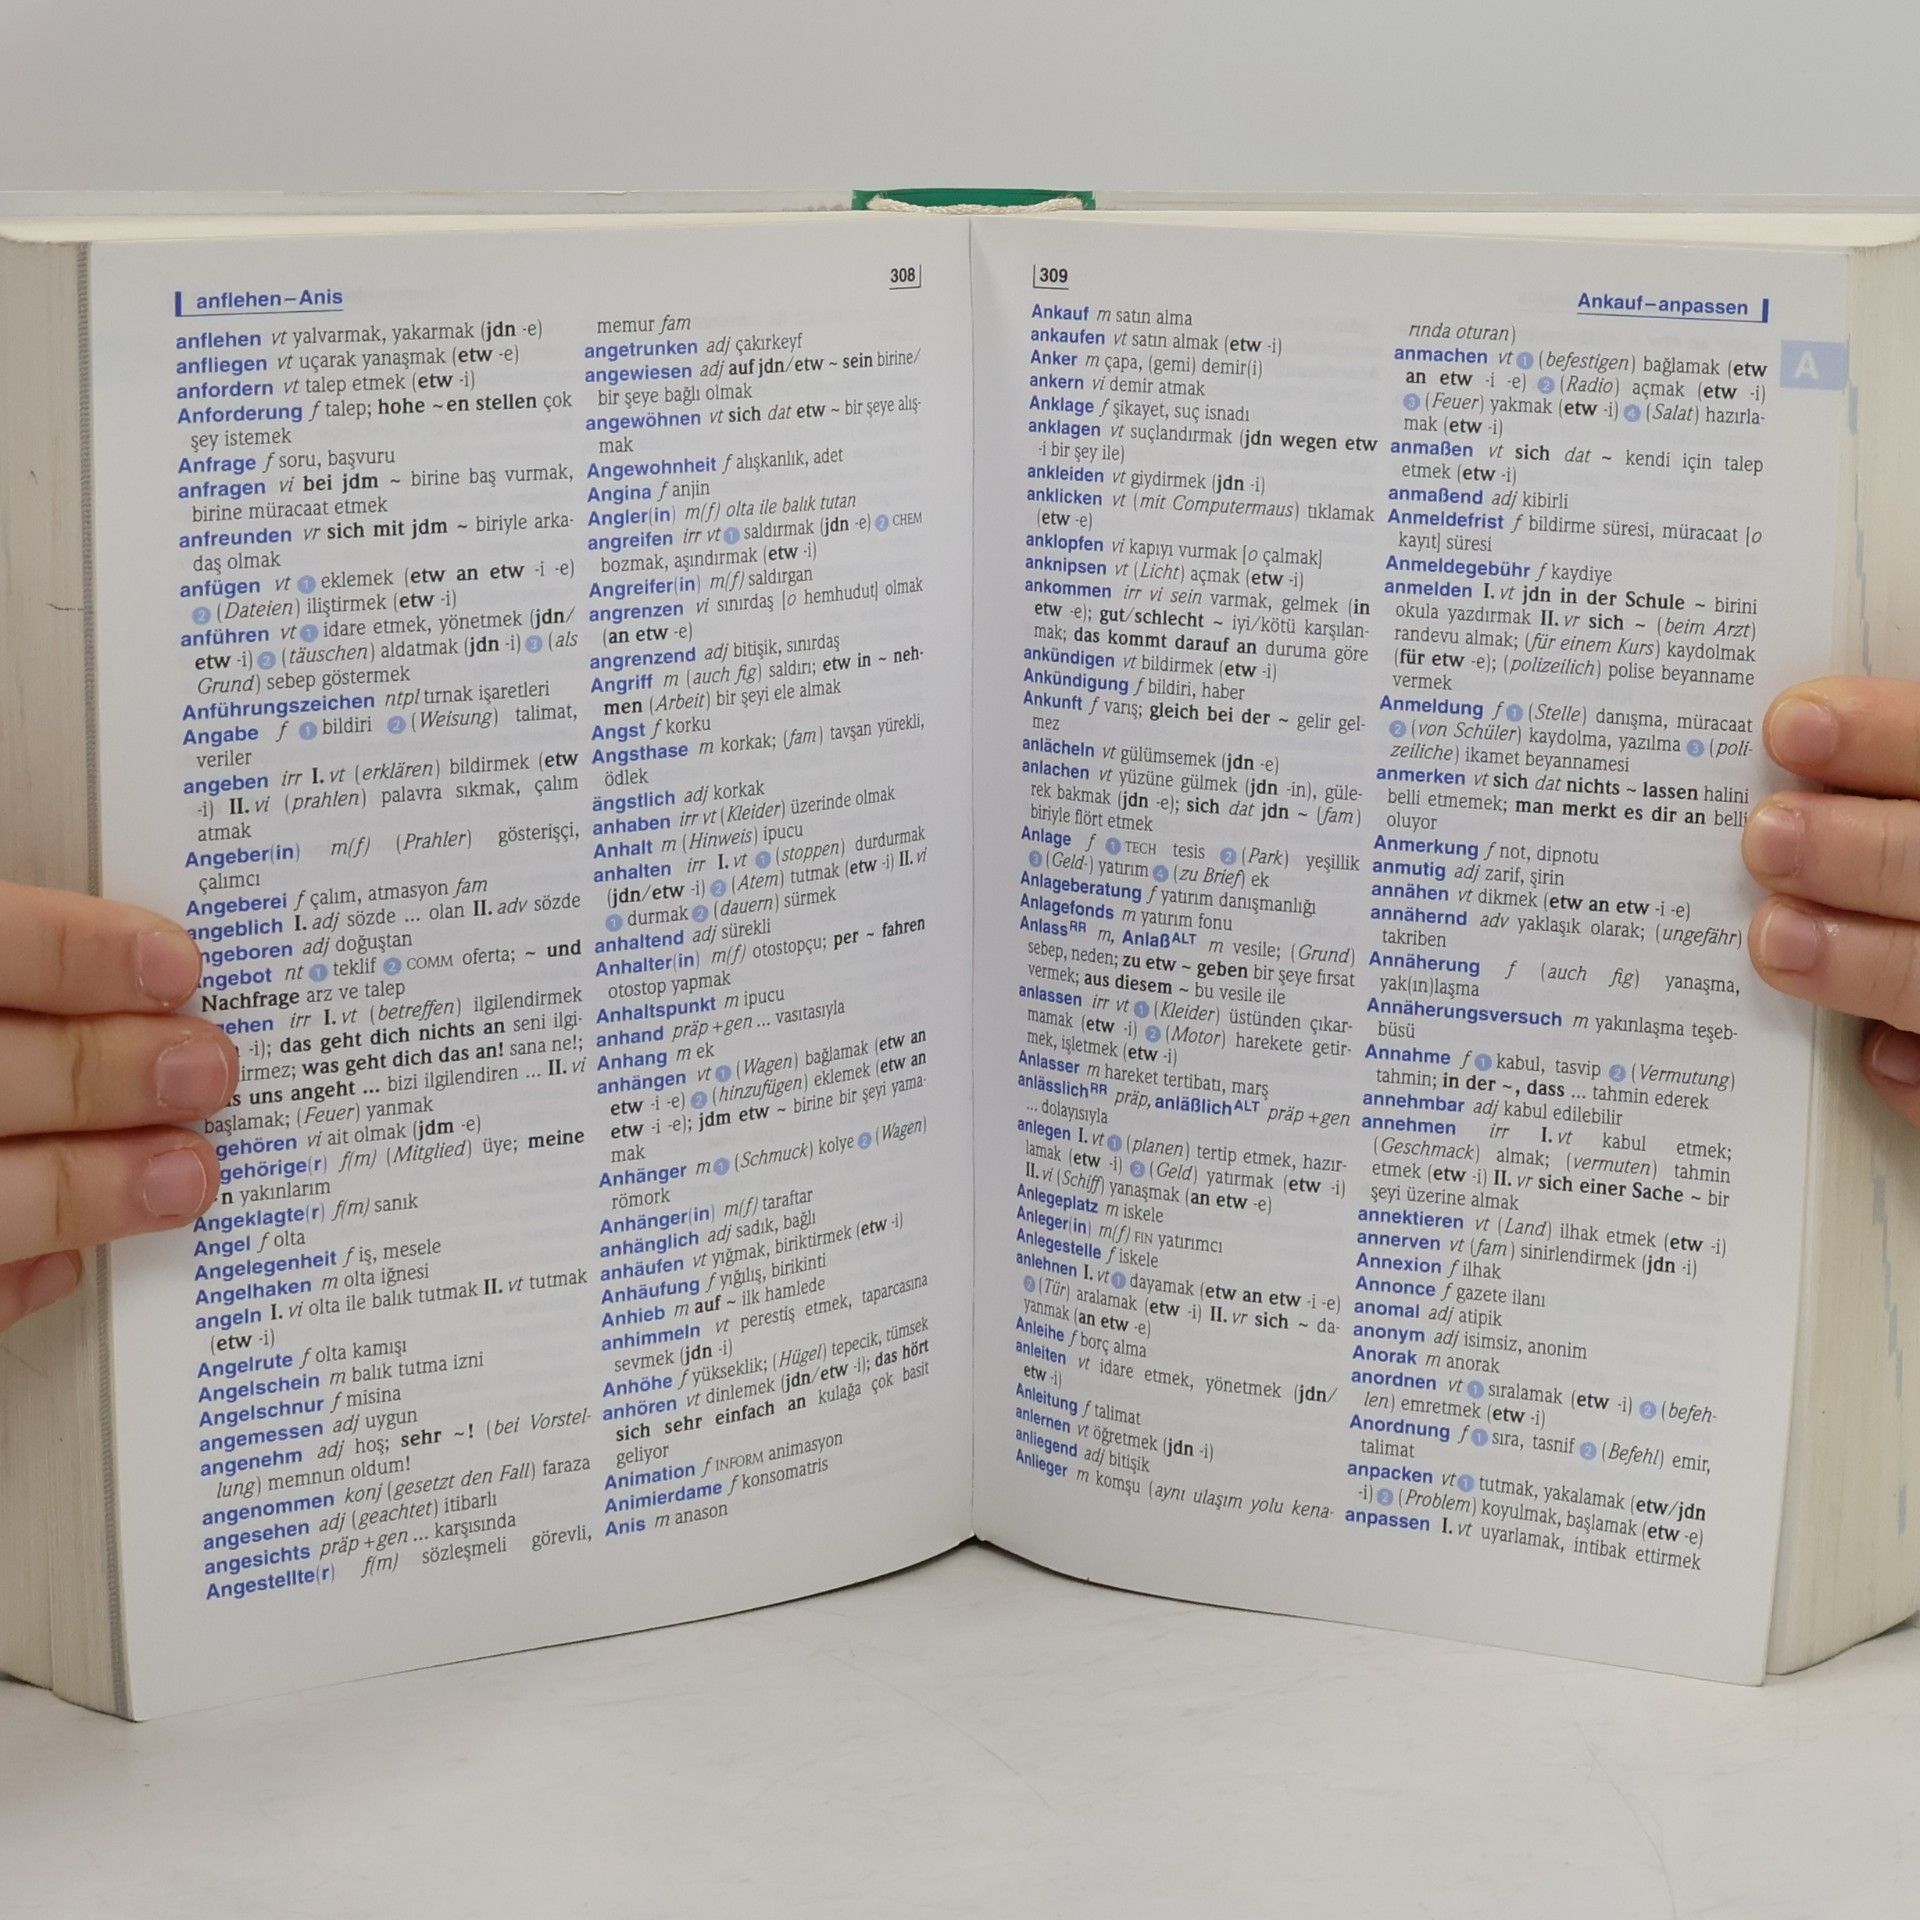 308
anflehen–Anis
anflehen vt yalvarmak, yakarmak (jdn -e)
anfliegen vt uçarak yanaşmak (etw -e)
anfordern vt talep etmek (etw -i)
Anforderung f talep; hohe ~en stellen çok
şey istemek
Anfrage f soru, başvuru
anfragen vi bei jdm ~ birine baş vurmak,
birine müracaat etmek
anfreunden vr sich mit jdm ~ biriyle arka-
daş olmak
anfügen vt 1 eklemek (etw an etw -i -e)
2 (Dateien) iliştirmek (etw -i)
anführen vt 1 idare etmek, yönetmek (jdn/
etw -i) 2 (täuschen) aldatmak (jdn -i) 3 (als
Grund) sebep göstermek
Anführungszeichen ntpl tırnak işaretleri
Angabe f 1 bildiri 2 (Weisung) talimat,
veriler
angeben irr I. vt (erklären) bildirmek (etw
-i) II. vi (prahlen) palavra sıkmak, çalım
atmak
Angeber(in) m(f) (Prahler) gösterişçi,
çalımcı
Angeberei f çalım, atmasyon fam
angeblich I. adj sözde ... olan II. adv sözde
ngeboren adj doğuştan
ngebot nt 1 teklif 2 COMM oferta; ~ und
Nachfrage arz ve talep
gehen irr I. vt (betreffen) ilgilendirmek
-i); das geht dich nichts an seni ilgi-
irmez; was geht dich das an! sana ne!;
s uns angeht ... bizi ilgilendiren ... II. vi
başlamak; (Feuer) yanmak
gehören vi ait olmak (jdm -e)
gehörige(r) f(m) (Mitglied) üye; meine
n yakınlarım
Angeklagte(r) f(m) sanık
Angel f olta
Angelegenheit f iş, mesele
Angelhaken m olta iğnesi
angeln I. vi olta ile balık tutmak II. vt tutmak
(etw -i)
Angelrute f olta kamışı
Angelschein m balık tutma izni
Angelschnur f misina
angemessen adj uygun
angenehm adj hoş; sehr ~! (bei Vorstel-
lung) memnun oldum!
angenommen konj (gesetzt den Fall) faraza
angesehen adj (geachtet) itibarlı
angesichts präp +gen ... karşısında
Angestellte(r) f(m) sözleşmeli görevli,
memur fam
angetrunken adj çakırkeyf
angewiesen adj auf jdn/etw ~ sein birine/
bir şeye bağlı olmak
angewöhnen vt sich dat etw ~ bir şeye alış-
mak
Angewohnheit f alışkanlık, adet
Angina f anjin
Angler(in) m(f) olta ile balık tutan
angreifen irr vt 1 saldırmak (jdn -e) 2 CHEM
bozmak, aşındırmak (etw -i)
Angreifer(in) m(f) saldırgan
angrenzen vi sınırdaş [o hemhudut] olmak
(an etw -e)
angrenzend adj bitişik, sınırdaş
Angriff m (auch fig) saldırı; etw in ~ neh-
men (Arbeit) bir şeyi ele almak
Angst f korku
Angsthase m korkak; (fam) tavşan yürekli,
ödlek
ängstlich adj korkak
anhaben irr vt (Kleider) üzerinde olmak
Anhalt m (Hinweis) ipucu
anhalten irr I. vt 1 (stoppen) durdurmak
(jdn/etw -i) 2 (Atem) tutmak (etw -i) II. vi
1 durmak 2 (dauern) sürmek
anhaltend adj sürekli
Anhalter(in) m(f) otostopçu; per ~ fahren
otostop yapmak
Anhaltspunkt m ipucu
anhand präp +gen ... vasıtasıyla
Anhang m ek
anhängen vt 1 (Wagen) bağlamak (etw an
etw -i -e) 2 (hinzufügen) eklemek (etw an
etw -i -e); jdm etw ~ birine bir şeyi yama-
mak
Anhänger m 1 (Schmuck) kolye 2 (Wagen)
römork
Anhänger(in) m(f) taraftar
anhänglich adj sadık, bağlı
anhäufen vt yığmak, biriktirmek (etw -i)
Anhäufung f yığılış, birikinti
Anhieb m auf ~ ilk hamlede
anhimmeln vt perestiş etmek, taparcasına
sevmek (jdn -i)
Anhöhe f yükseklik; (Hügel) tepecik, tümsek
anhören vt dinlemek (jdn/etw -i); das hört
sich sehr einfach an kulağa çok basit
geliyor
Animation f INFORM animasyon
Animierdame f konsomatris
Anis m anason
309
Ankauf–anpassen
A
Ankauf m satın alma
ankaufen vt satın almak (etw -i)
Anker m çapa, (gemi) demir(i)
ankern vi demir atmak
Anklage f şikayet, suç isnadı
anklagen vt suçlandırmak (jdn wegen etw
-i bir şey ile)
ankleiden vt giydirmek (jdn -i)
anklicken vt (mit Computermaus) tıklamak
(etw -e)
anklopfen vi kapıyı vurmak [o çalmak]
anknipsen vt (Licht) açmak (etw -i)
ankommen irr vi sein varmak, gelmek (in
etw -e); gut/schlecht ~ iyi/kötü karşılan-
mak; das kommt darauf an duruma göre
ankündigen vt bildirmek (etw -i)
Ankündigung f bildiri, haber
Ankunft f varış; gleich bei der ~ gelir gel-
mez
anlächeln vt gülümsemek (jdn -e)
anlachen vt yüzüne gülmek (jdn -in), güle-
rek bakmak (jdn -e); sich dat jdn ~ (fam)
biriyle flört etmek
Anlage f 1 TECH tesis 2 (Park) yeşillik
3 (Geld-) yatırım 4 (zu Brief) ek
Anlageberatung f yatırım danışmanlığı
Anlagefonds m yatırım fonu
Anlass RR m, Anlaß ALT m vesile; (Grund)
sebep, neden; zu etw ~ geben bir şeye fırsat
vermek; aus diesem ~ bu vesile ile
anlassen irr vt 1 (Kleider) üstünden çıkar-
mamak (etw -i) 2 (Motor) harekete getir-
mek, işletmek (etw -i)
Anlasser m hareket tertibatı, marş
anlässlich RR präp, anläßlich ALT präp +gen
... dolayısıyla
anlegen I. vt 1 (planen) tertip etmek, hazır-
lamak (etw -i) 2 (Geld) yatırmak (etw -i)
II. vi (Schiff) yanaşmak (an etw -e)
Anlegeplatz m iskele
Anleger(in) m(f) FIN yatırımcı
Anlegestelle f iskele
anlehnen I. vt 1 dayamak (etw an etw -i -e)
2 (Tür) aralamak (etw -i) II. vr sich ~ da-
yanmak (an etw -e)
Anleihe f borç alma
anleiten vt idare etmek, yönetmek (jdn/
etw -i)
Anleitung f talimat
anlernen vt öğretmek (jdn -i)
anliegend adj bitişik
Anlieger m komşu (aynı ulaşım yolu kena-
rında oturan)
anmachen vt 1 (befestigen) bağlamak (etw
an etw -i -e) 2 (Radio) açmak (etw -i)
3 (Feuer) yakmak (etw -i) 4 (Salat) hazırla-
mak (etw -i)
anmaßen vt sich dat ~ kendi için talep
etmek (etw -i)
anmaßend adj kibirli
Anmeldefrist f bildirme süresi, müracaat [o
kayıt] süresi
Anmeldegebühr f kaydiye
anmelden I. vt jdn in der Schule ~ birini
okula yazdırmak II. vr sich ~ (beim Arzt)
randevu almak; (für einem Kurs) kaydolmak
(für etw -e); (polizeilich) polise beyanname
vermek
Anmeldung f 1 (Stelle) danışma, müracaat
2 (von Schüler) kaydolma, yazılma 3 (poli-
zeiliche) ikamet beyannamesi
anmerken vt sich dat nichts ~ lassen halini
belli etmemek; man merkt es dir an belli
oluyor
Anmerkung f not, dipnotu
anmutig adj zarif, şirin
annähen vt dikmek (etw an etw -i -e)
annähernd adv yaklaşık olarak; (ungefähr)
takriben
Annäherung f (auch fig) yanaşma,
yak(ın)laşma
Annäherungsversuch m yakınlaşma teşeb-
büsü
Annahme f 1 kabul, tasvip 2 (Vermutung)
tahmin; in der ~, dass ... tahmin ederek
annehmbar adj kabul edilebilir
annehmen irr I. vt kabul etmek;
(Geschmack) almak; (vermuten) tahmin
etmek (etw -i) II. vr sich einer Sache ~ bir
şeyi üzerine almak
annektieren vt (Land) ilhak etmek (etw -i)
annerven vt (fam) sinirlendirmek (jdn -i)
Annexion f ilhak
Annonce f gazete ilanı
anomal adj atipik
anonym adj isimsiz, anonim
Anorak m anorak
anordnen vt 1 sıralamak (etw -i) 2 (befeh-
len) emretmek (etw -i)
Anordnung f 1 sıra, tasnif 2 (Befehl) emir,
talimat
anpacken vt 1 tutmak, yakalamak (etw/jdn
-i) 2 (Problem) koyulmak, başlamak (etw -e)
anpassen I. vt uyarlamak, intibak ettirmek